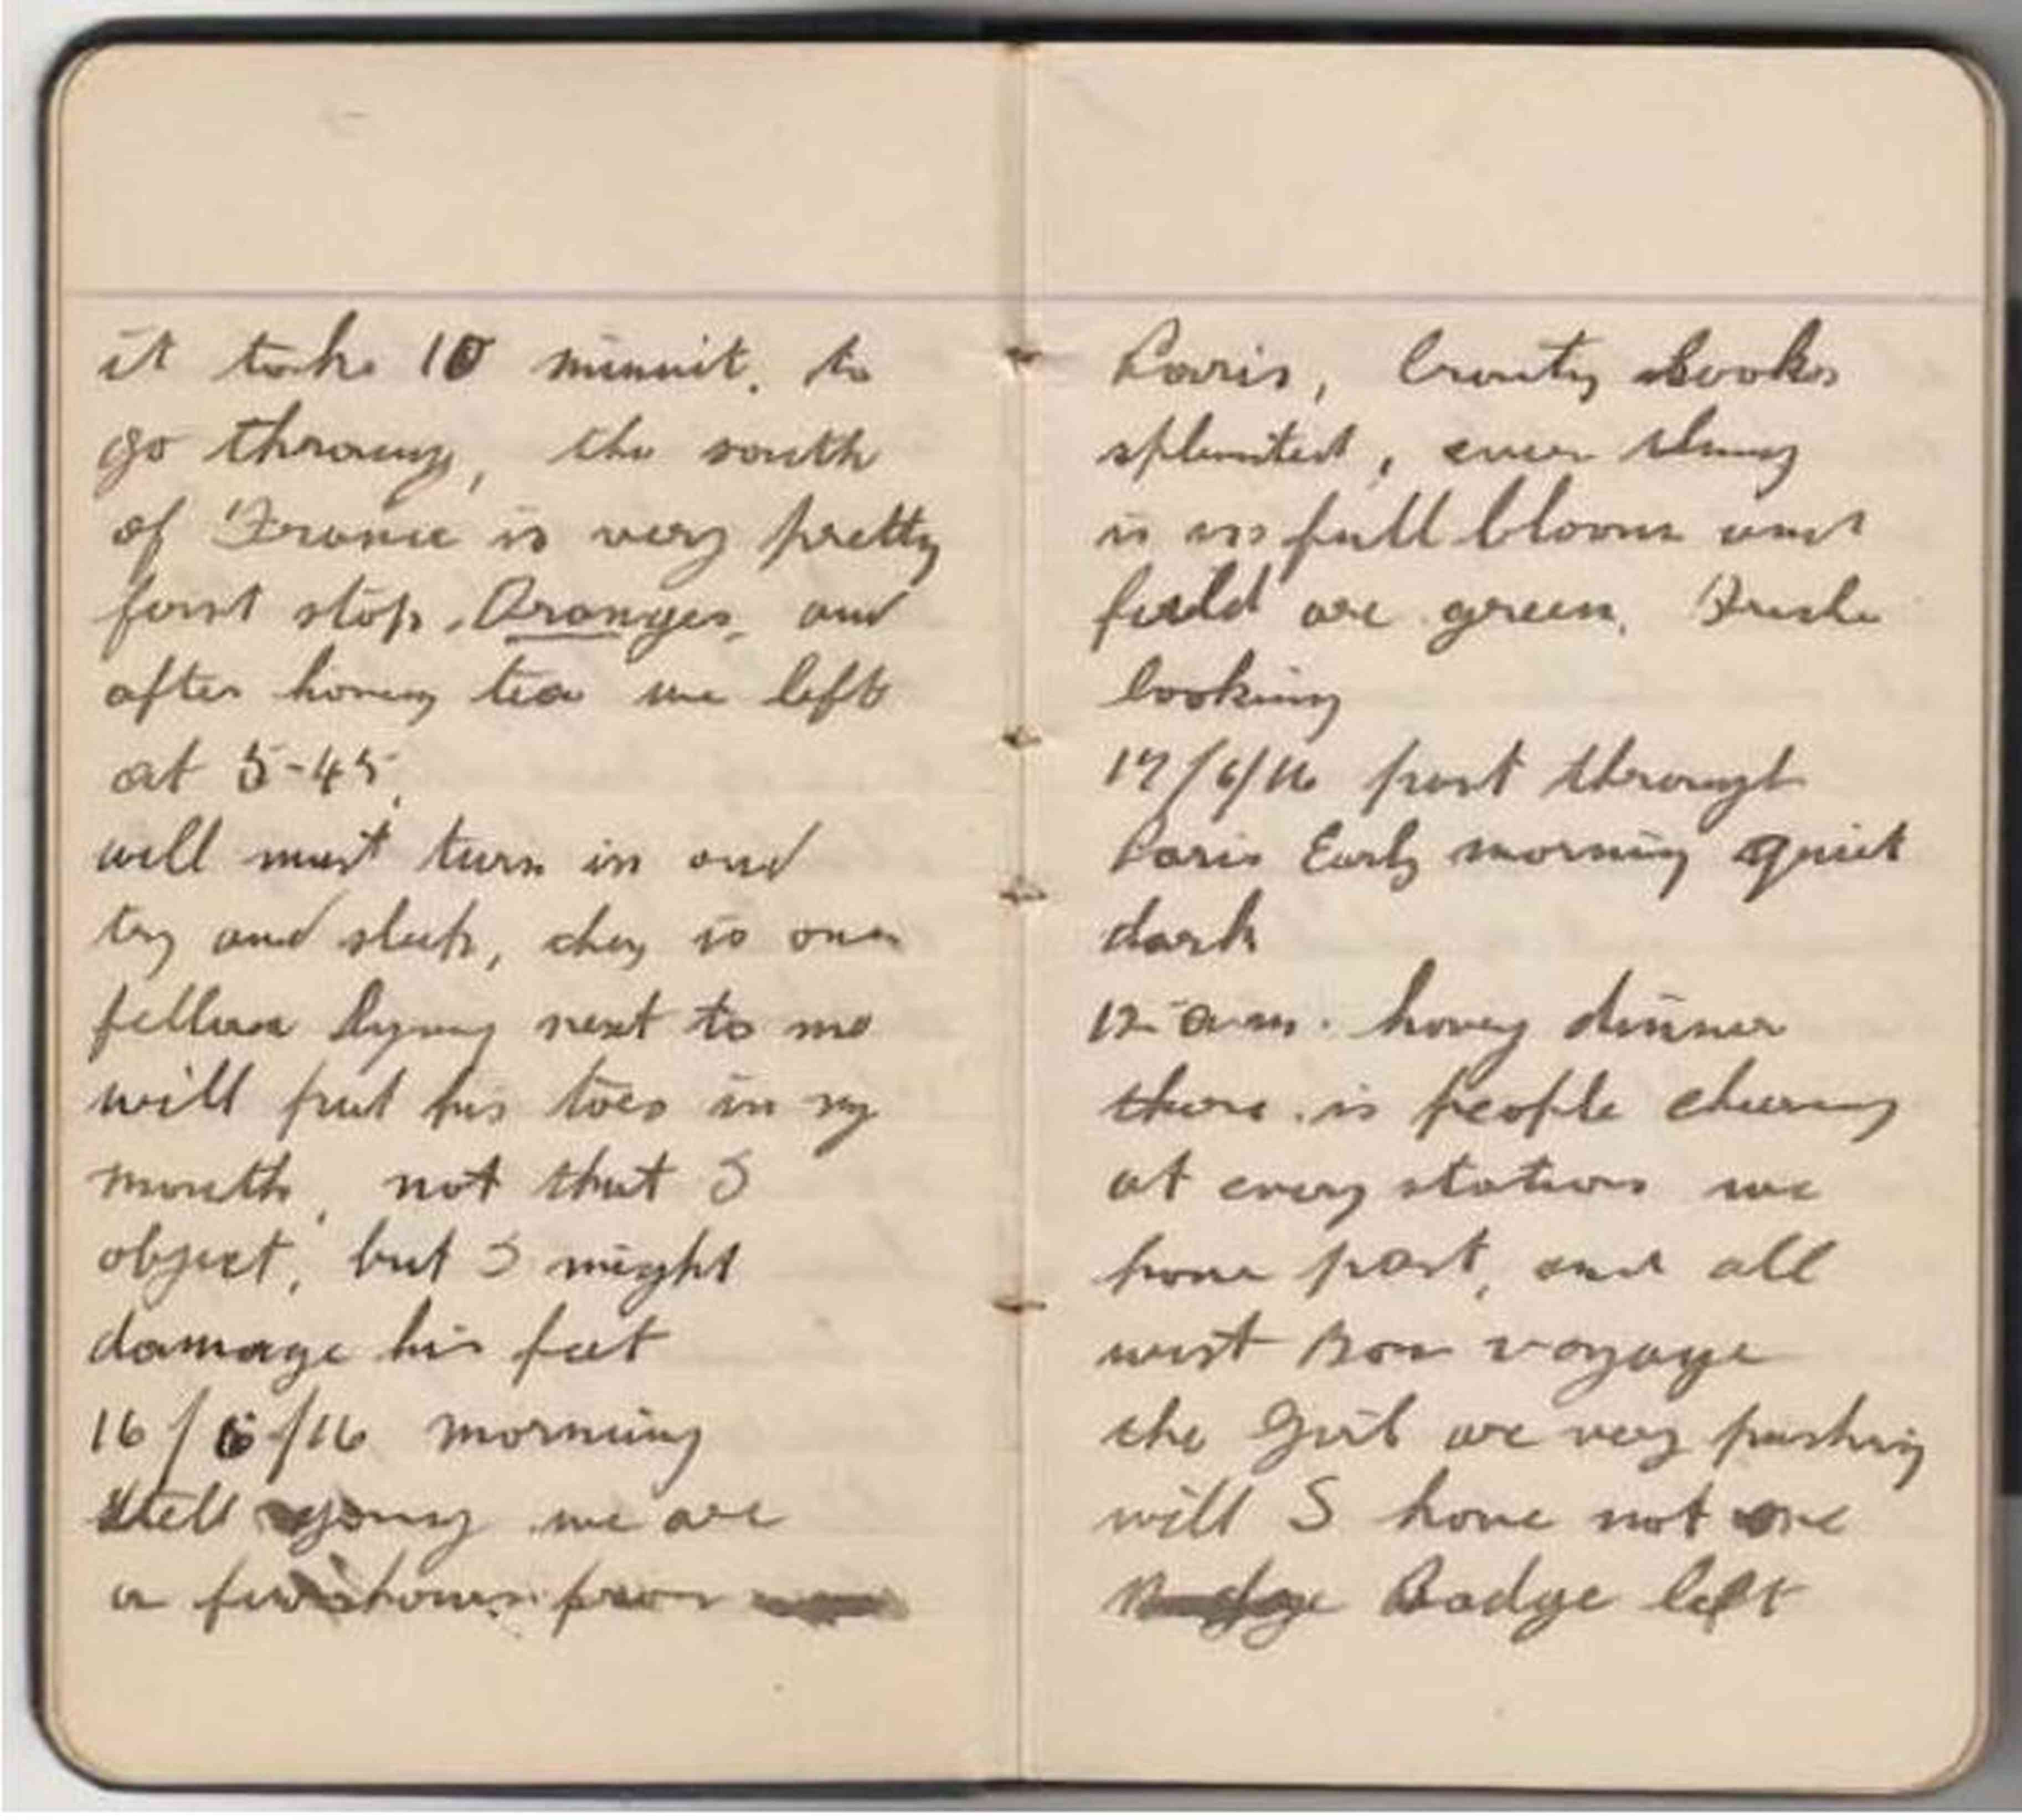 it take 10 minuit. to
go throug, the south
of France is very pretty
first stop. Oranges, and
after having tea we left
at 5-45.
will must turn in and
try and sleep, they is one
fellow lying next to me
will put his toes in my
mouth, not that I
object, but I might
damage his feet
16/6/16 morning
still going we are
a few hours from
Paris, Country Looks
splendted, ever thing
is in full bloom and
field are green. Freshe
looking
17/6/16 past through
Paris Early morning quiet
dark
12 a.m. having dinner
there is people cheering
at every station we
have past, and all
wist Bon voyage
the Girls are very pushing
will I have not one
Badge left